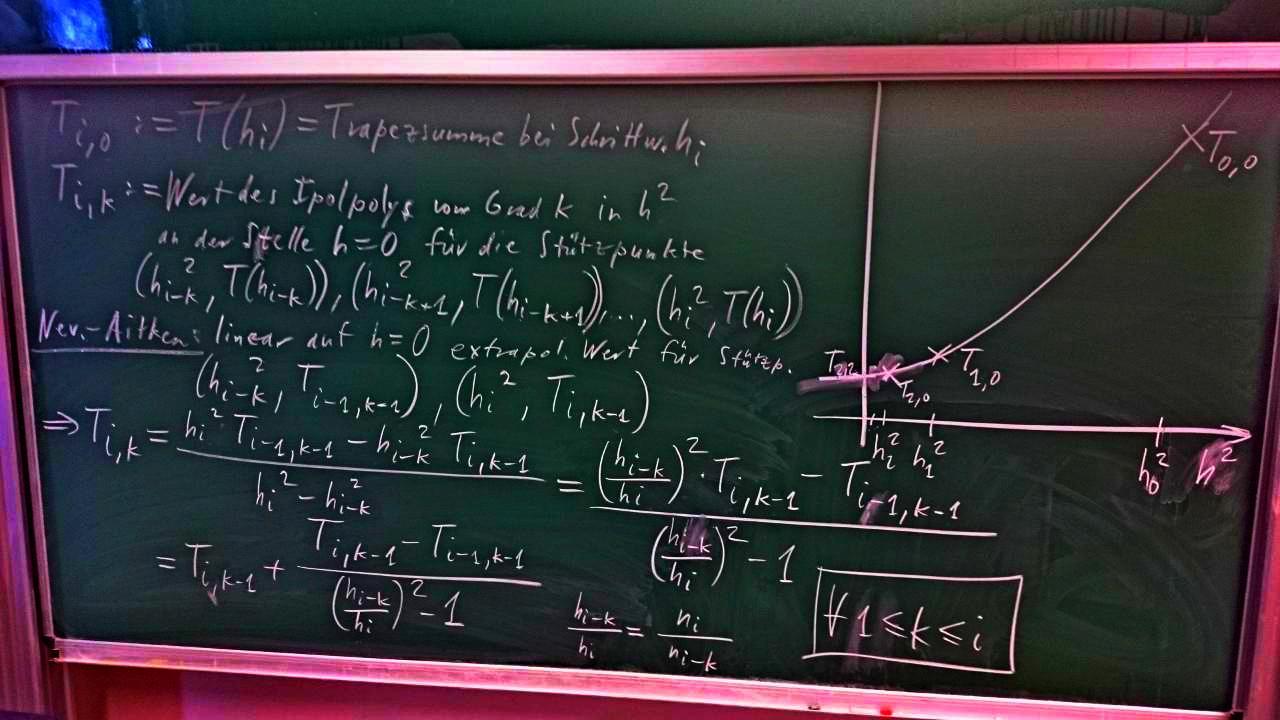 T_{i,0} := T(h_i) = Trapezsumme bei Schrittw. h_i
T_{i,k} := Wert des Ipolpolys vom Grad k in h^2
an der Stelle h=0 für die Stützpunkte
(h_{i-k}^2, T(h_{i-k})), (h_{i-k+1}^2, T(h_{i-k+1})), ..., (h_i^2, T(h_i))
Nev.-Aitken: linear auf h=0 extrapol. Wert für Stützp.
(h_{i-k}^2, T_{i-1,k-1}), (h_i^2, T_{i,k-1})
⇒ T_{i,k} = \frac{h_i^2 T_{i-1,k-1} - h_{i-k}^2 T_{i,k-1}}{h_i^2 - h_{i-k}^2} = \frac{(\frac{h_{i-k}}{h_i})^2 · T_{i,k-1} - T_{i-1,k-1}}{(\frac{h_{i-k}}{h_i})^2 - 1}
= T_{i,k-1} + \frac{T_{i,k-1} - T_{i-1,k-1}}{(\frac{h_{i-k}}{h_i})^2 - 1}
\frac{h_{i-k}}{h_i} = \frac{n_i}{n_{i-k}}
∀ 1 ≤ k ≤ i
T_{0,0}
T_{2,2}
T_{2,0}
T_{1,0}
h_2^2
h_1^2
h_0^2
h^2